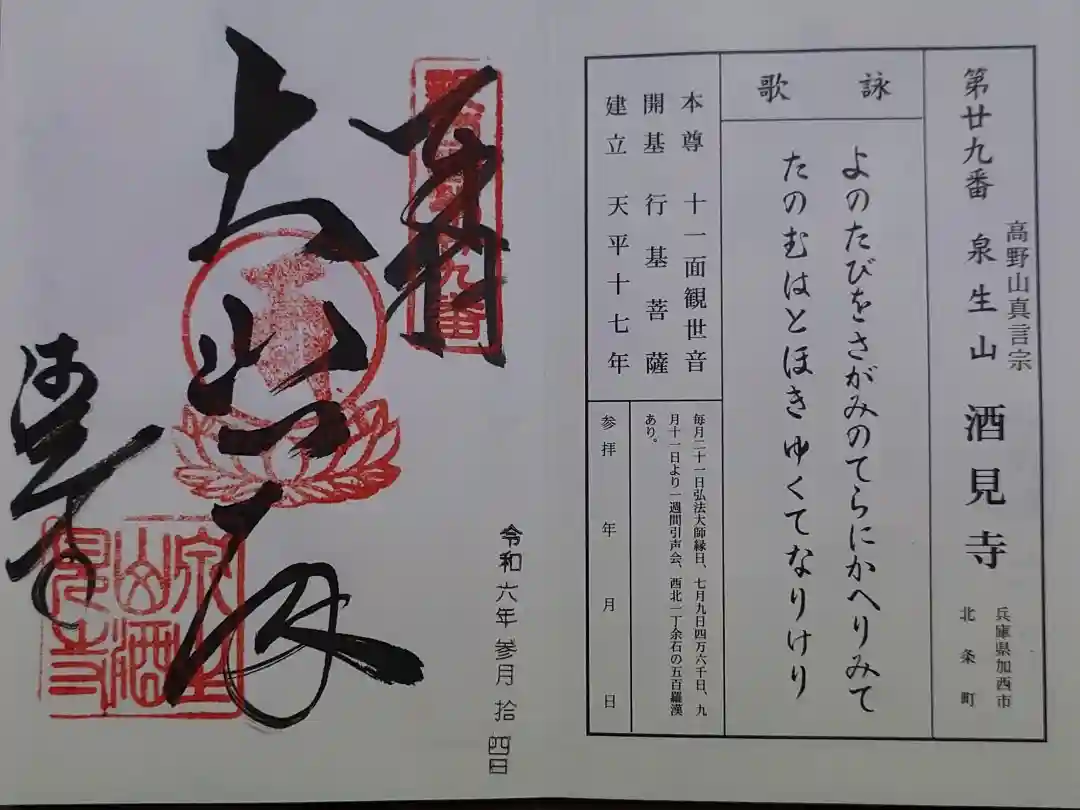 第廿九番 泉生山 酒見寺
高野山真言宗
兵庫県加西市
北条町
詠歌
よのたびをさがみのてらにかへりみて
たのむはとほきゆくてなりけり
本尊 十一面観世音
開基 行基菩薩
建立 天平十七年
毎月二十一日弘法大師縁日、七月九日四万六千日、九
月十一日より一週間引声会、西北一丁余石の五百羅漢
あり。
参拝 年 月 日
令和六年参月拾四日
奉拝
大悲殿
酒見寺
泉生
山酒
見寺